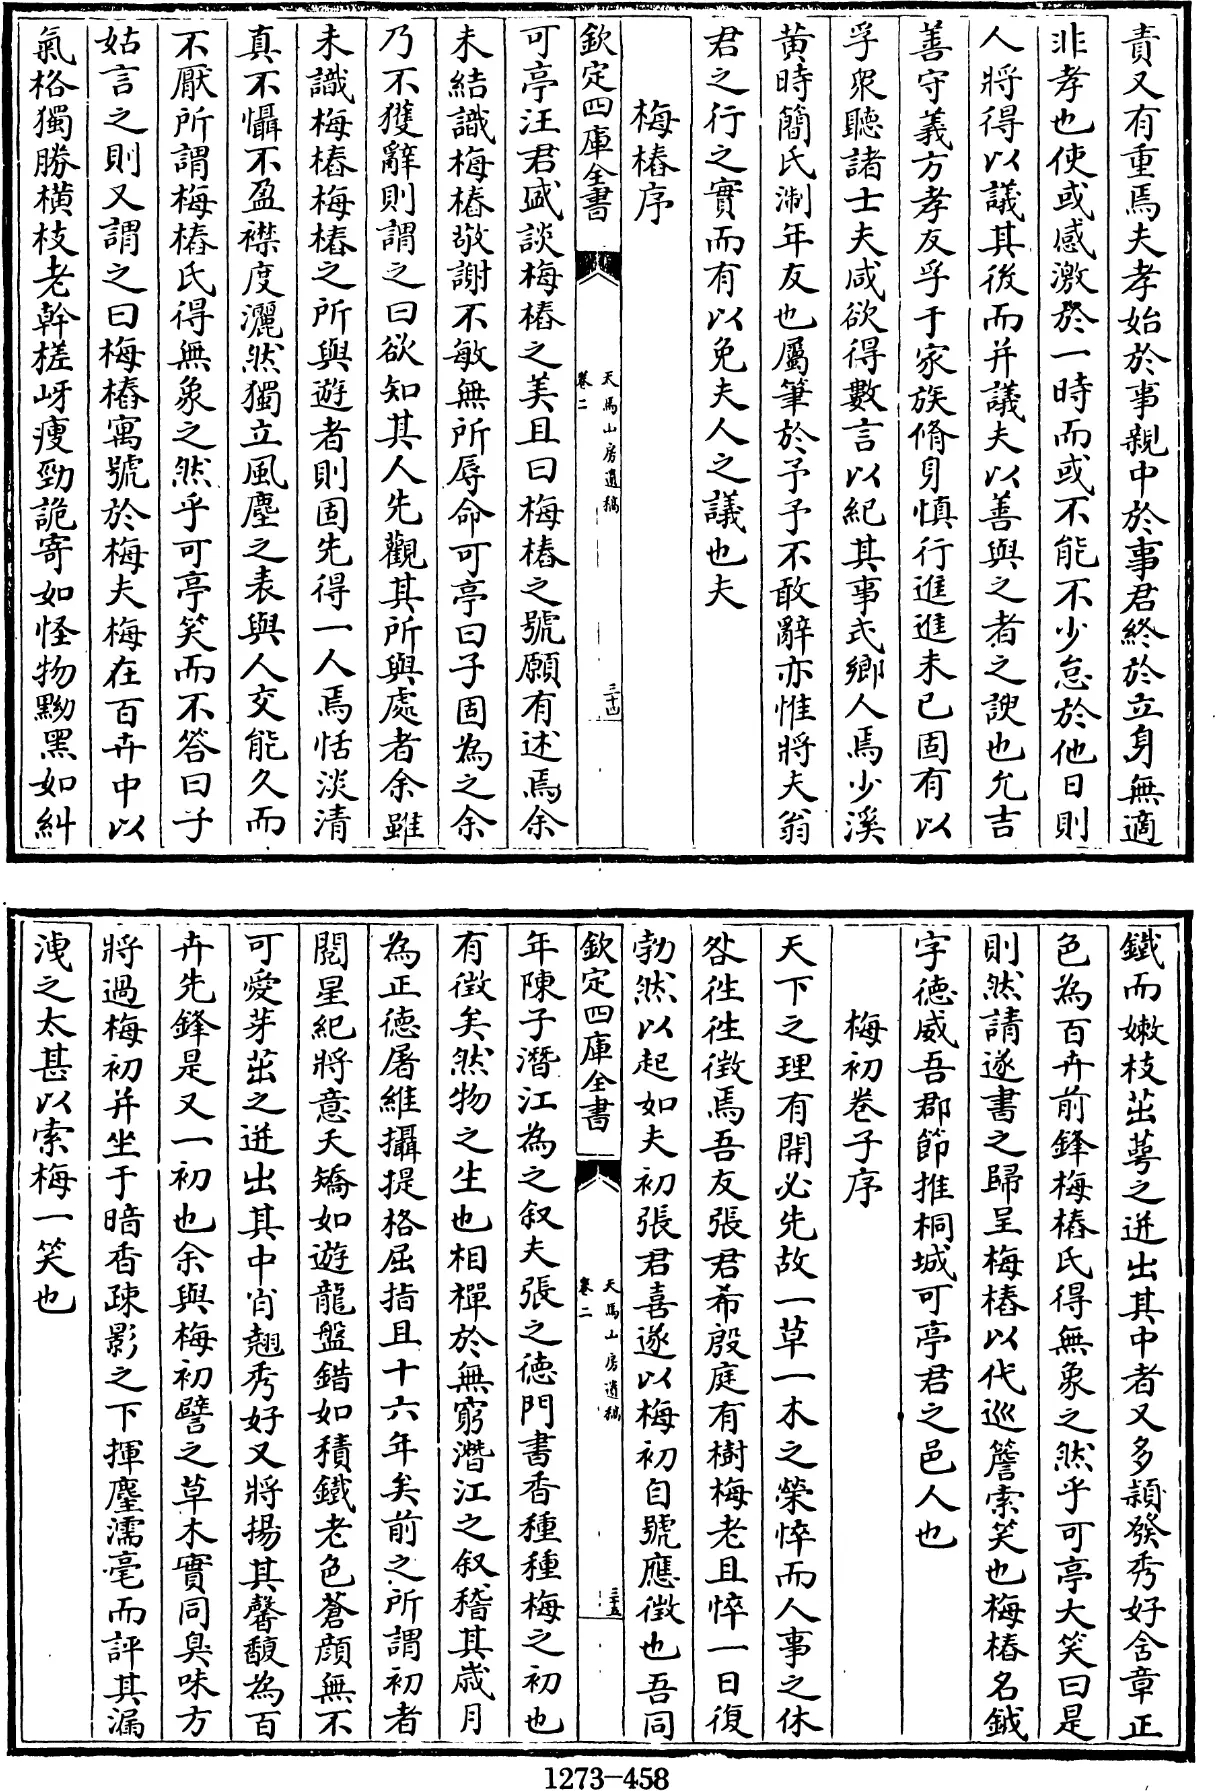 責又有重焉夫孝始於事親中於事君終於立身無適
非孝也使或感激於一時而或不能不少怠於他日則
人將得以議其後而并議夫以善與之者之諛也允吉
善守義方孝友孚于家族脩身慎行進進未已固有以
孚衆聽諸士夫咸欲得數言以紀其事式鄉人焉少溪
黄時簡氏淛年友也屬筆於予予不敢辭亦惟將夫翁
君之行之實而有以免夫人之議也夫
梅樁序
欽定四庫全書
天馬山房遺稿
卷二
三十四
可亭汪君盛談梅樁之美且曰梅樁之號願有述焉余
未結識梅樁敬謝不敏無所辱命可亭曰子固為之余
乃不獲辭則謂之曰欲知其人先觀其所與處者余雖
未識梅樁梅樁之所與遊者則固先得一人焉恬淡清
真不懾不盈襟度灑然獨立風塵之表與人交能久而
不厭所謂梅樁氏得無象之然乎可亭笑而不答曰子
姑言之則又謂之曰梅樁寓號於梅夫梅在百卉中以
氣格獨勝橫枝老幹槎岈瘦勁詭寄如怪物黝黑如糾
鐵而嫩枝茁萼之迸出其中者又多頴發秀好含章正
色為百卉前鋒梅樁氏得無象之然乎可亭大笑曰是
則然請遂書之歸呈梅樁以代巡簷索笑也梅樁名鉞
字徳威吾郡節推桐城可亭君之邑人也
梅初卷子序
天下之理有開必先故一草一木之榮悴而人事之休
咎徃徃徵焉吾友張君希殷庭有樹梅老且悴一日復
勃然以起如夫初張君喜遂以梅初自號應徴也吾同
欽定四庫全書
天馬山房遺稿
卷二
三十五
年陳子潛江為之叙夫張之徳門書香種種梅之初也
有徴矣然物之生也相禪於無窮潛江之叙稽其歲月
為正德屠維攝提格屈指且十六年矣前之所謂初者
閱星紀將意夭矯如遊龍盤錯如積鐵老色蒼顔無不
可愛芽茁之迸出其中肯翹秀好又將揚其馨馥為百
卉先鋒是又一初也余與梅初譬之草木實同臭味方
將過梅初并坐于暗香疎影之下揮麈濡毫而評其漏
洩之太甚以索梅一笑也
1273-458